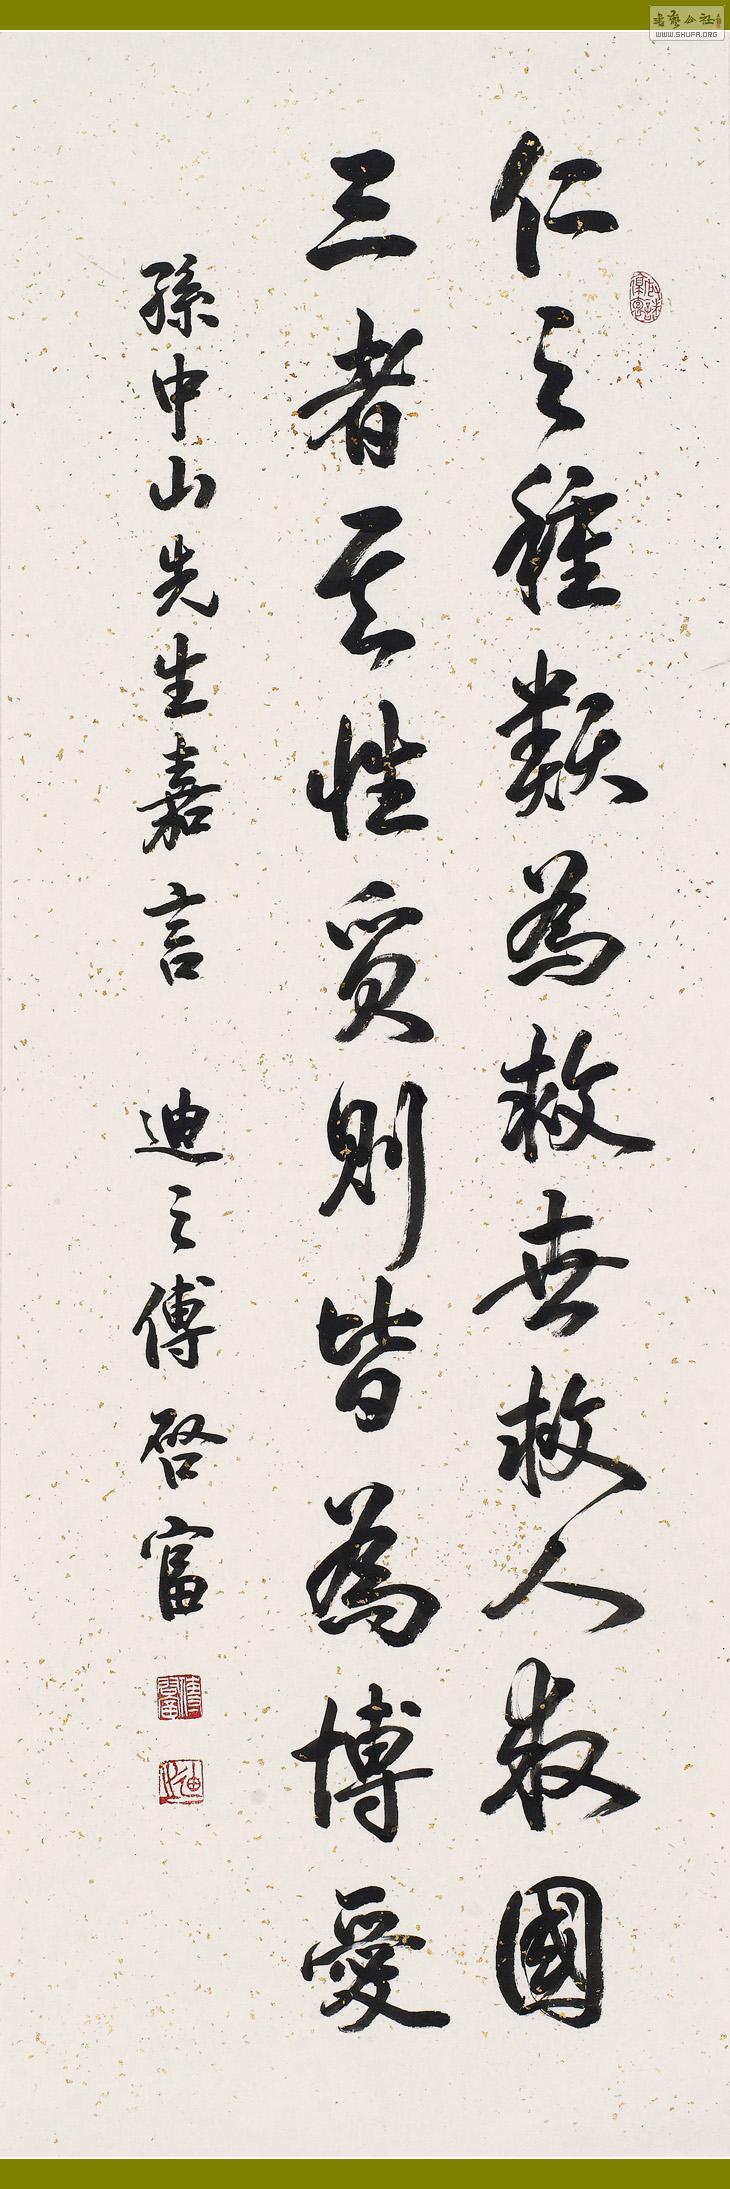 仁之種類為救世救人救國
三者其性質則皆為博愛
孫中山先生嘉言 迪之傅啓富
WWW.SHUFA.ORG